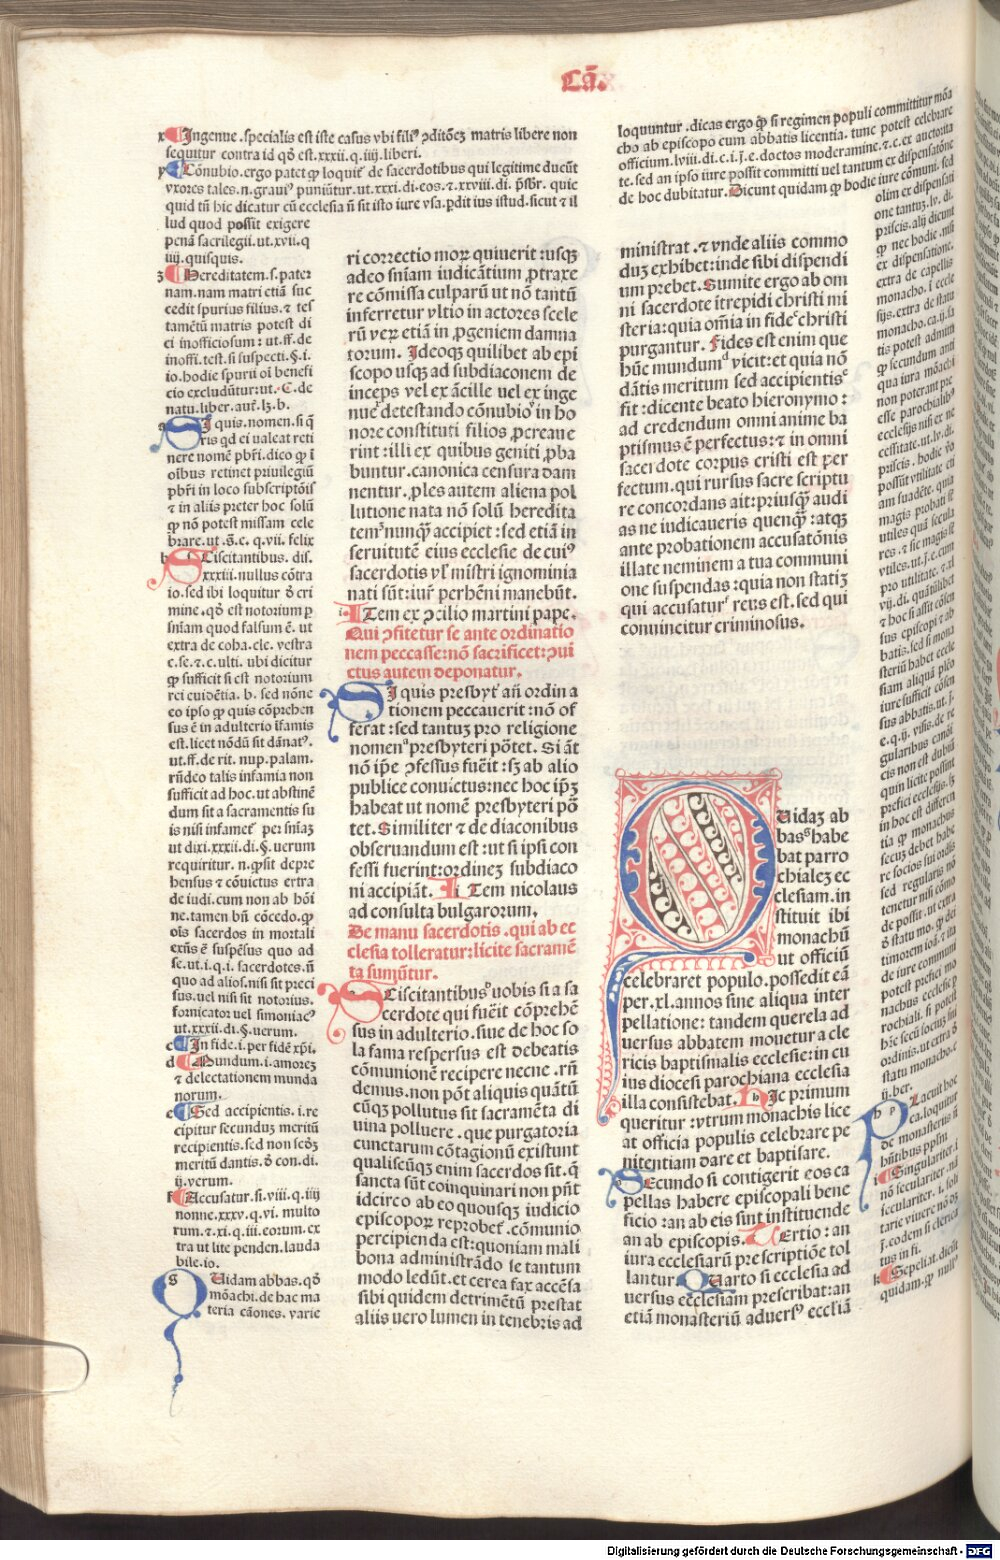 Cā.
x Ingenue .specialis est iste casus vbi filiꝰ ꝯditōeꝫ matris libere non
sequitur contra id qđ est.xxxii.q.iiij.liberi.
y Cōnubio.ergo patet ꝙ loquitᷣ de sacerdotibus qui legitime ducūt
vxores tales.n.grauiꝰ puniūtur.ut.xxxi.di.eos.⁊.xxviii.di. p̄sbr. quic
quid tn̄ hic dicatur cū ecclesia n̄ sit isto iure vsa.ꝑdit ius istud.sicut ⁊ il
lud quod possit exigere
penā sacrilegii.ut.xvii.q
iiij.quisquis.
z Hereditatem.s.pater
nam.nam matri etiā suc
cedit spurius filius.⁊ tes
tamētū matris potest di
ci inofficiosum: ut.ff.de
inoffi.test.si suspecti.§.i.
io.hodie spurii oī benefi
cio excludūtur:ut. C. de
natu.liber.aut̄.lꝫ.b.
a SI quis.nomen.si q̄
ris qd ei ualeat reti
nere nomē pbr̄i.dico ꝙ ī
oībus retinet priuilegiū
pbr̄i in loco subscriptōis
⁊ in aliis preter hoc solū
ꝙ nō potest missam cele
brare.ut .s̄.e. q.vii. felix
b SCiscitantibus. dis.
xxxiii.nullus cōtra
io.sed ibi loquitur đ cri
mine.qđ est notorium ꝑ
sn̄iam quod falsum ē. ut
extra de coha.cle. vestra
c.se.⁊.c.ulti. ubi dicitur
ꝙ sufficit si est notorium
rei euidētia. b. sed nōne
eo ipso ꝙ quis cōprehen
sus ē in adulterio īfamis
est.licet nōdū sit dānatꝰ.
ut.ff.de rit. nup.palam.
rn̄deo talis infamia non
sufficit ad hoc.ut abstinē
dum sit a sacramentis su
is nisi infametᷣ per sn̄iaꝫ
ut dixi.xxxii.di.§. uerum
requiritur. n.ꝙ sit depre
hensus ⁊ cōuictus extra
de iudi.cum non ab hōi
ne.tamen bn̄ cōcedo.ꝙ
ois sacerdos in mortali
exn̄s ē suspēsus quo ad
se.ut.i.q.i. sacerdotes.n̄
quo ad alios.nisi sit preci
sus.uel nisi sit notorius.
fornicator uel simoniacꝰ
ut.xxxii.di.§.verum.
c In fide.i.per fidē xp̄i.
d Mundum.i.amoreꝫ
⁊ delectationem munda
norum.
e Sed accipientis. i.re
cipitur secunduꝫ meritū
recipientis.sed non scđꝫ
meritū dantis.đ con.di.
ij.verum.
f Accusatur.si.viii.q.iiij
nonne.xxxv.q.vi. multo
rum.⁊.xi.q.iii.eorum.ex
tra ut lite penden.lauda
bile.io.
g QUidam abbas.qđ
mōachi.de hac ma
teria cāones. varie
ri correctio moꝝ quiuerit :usqꝫ
adeo sn̄iam iudicātium ꝓtraxe
re cōmissa culparū ut nō tantū
inferretur vltio in actores scele
rū veꝝ etiā in ꝓgeniem damna
torum. Ideoqꝫ quilibet ab epi
scopo usqꝫ ad subdiaconem de
inceps vel ex ācille uel ex inge
nue detestando cōnubioˈ in ho
nore constituti filios ꝓcreaue
rint :illi ex quibus geniti ꝓba
buntur .canonica censura dam
nentur .ꝓles autem aliena pol
lutione nata nō solū heredita
temᶻ nunqꝫ̄ accipiet :sed etiā in
seruitutē eius ecclesie de cuiꝰ
sacerdotis vlˀ mīstri ignominia
nati sūt:iurᷣ perhēni manebūt.
Item ex ꝯcilio martini pape.
Qui ꝯfitetur se ante ordinatio
nem peccasse:nō sacrificet:ꝯui
ctus autem deponatur.
SI quis presbytˀ an̄ ordin a
tionem peccauerit :nō of
ferat :sed tantuꝫ pro religione
nomenᵃpresbyteri pōtet. Si āt
nō ip̄e ꝯfessus fuēit :sꝫ ab alio
publice conuictus:nec hoc ip̄ꝫ
habeat ut nomē presbyteri pō
tet. Similiter ⁊ de diaconibus
obseruandum est :ut si ipsi con
fessi fuerint:ordineꝫ subdiaco
ni accipiāt. Item nicolaus
ad consulta bulgarorum.
De manu sacerdotis .qui ab ec
clesia tolleratur:licite sacramē
ta sumūtur.
SCiscitantibusᵇuobis si a sa
cerdote qui fuēit cōprehē
sus in adulterio .siue de hoc so
la fama respersus est debeatis
cōmunionē recipere necne .rn̄
demus.non pōt aliquis quātū
cūqꝫ pollutus sit sacramēta di
uina polluere .que purgatoria
cunctarum cōtagionū existunt
qualiscūqꝫ enim sacerdos sit.q̄
sancta sūt coinquinari non pn̄t
idcirco ab eo quousqꝫ iudicio
episcopoꝝ reprobetᷣ .cōmunio
percipienda est:quoniam mali
bona administrādo se tantum
modo ledūt.et cerea fax accēsa
sibi quidem detrimētū prestat
aliis uero lumen in tenebris ad
loquuntur .dicas ergo ꝙ si regimen populi committitur mōa
cho ab episcopo cum abbatis licentia. tunc potest celebrare
officium.lviii.di.c.i.⁊.c.doctos moderamine.⁊.c.ex auctorita
te.sed an ipso iure possit committi uel tantum ex dispensatōne
de hoc dubitatur. Dicunt quidam ꝙ hodie iure cōmuni. sed
ministrat .⁊ vnde aliis commo
duꝫ exhibet:inde sibi dispendi
um prebet. Sumite ergo ab om
ni sacerdote ītrepidi christi mi
steria:quia om̄ia in fideᶜchristi
purgantur. Fides est enim que
hūc mundumᵈvicit:et quia nō
dātis meritum sed accipientisᵉ
fit :dicente beato hieronymo :
ad credendum omni anime ba
ptismus ē perfectus:⁊ in omni
sacerdote corpus cristi est per
fectum.qui rursus sacre scriptu
re concordans ait:priusqꝫ̄ audi
as ne iudicaueris quenqꝫ̄ :atqꝫ
ante probationem accusatōnis
illate neminem a tua communi
one suspendas :quia non statiꝫ
qui accusaturᶠ reus est.sed qui
conuincitur criminosus.
QUidaꝫ ab
basᵍhabe
bat parro
chialeꝫ ec
clesiam.in
stituit ibi
monachū
ut officiū
celebraret populo.possedit eā
per.xl.annos sine aliqua inter
pellatione: tandem querela ad
uersus abbatem mouetur a cle
ricis baptismalis ecclesie:in cu
ius diocesi parochiana ecclesia
illa consistebat. Hic primum
queritur :vtrum monachis lice
at officia populis celebrare pe
nitentiam dare et baptisare.
Secundo si contigerit eos ca
pellas habere episcopali bene
ficio :an ab eis sint instituende
an ab episcopis. Tertio : an
iura ecclesiarū prescriptiōe tol
lantur. Quarto si ecclesia ad
uersus ecclesiam prescribat:an
etiā monasteriū aduersꝰ eccliā
olim ex dispensati
one tantuꝫ.lv. di.
priscis.alij dicunt
ꝙ nec hodie .nisi
ex dispensatione.
extra de capellis
monacho. i eccle
sijs.extra de statu
monacho.ca.ij.sa
tis potest admitti
ꝙ secundum anti
qua iura mōachi
non poterant pre
esse parochialibꝰ
ecclesijs nisi ex ne
cessitate.ut.lv. di.
priscis. hodie vo
possūt vtilitate eti
am suadēte. quia
magis probati sē
utiles quā secula
res .⁊ sic magis sē
vtiles.ut.j.e.cum
pro utilitate.⁊.xl
vij.di. quātūlibet
⁊ hoc si assit cōsen
sus episcopi ⁊ ab
batis.sed si mona
steriū habet eccle
siam aliquā pleno
iure sufficit cōsen
sus abbatis.ut.j.
e.q.ij. visis.de re
gularibus canōi
cis non est dubiū
quin licite possint
prefici ecclesijs.lꝫ
in hoc est differen
tia ꝙ monachus
secuꝫ debet habe
re socios sui ordīs
sed regularis nō
tenetur nisi cōmo
de possit.ut extra
đ statu mo. ꝙ dei
timorem.iō.⁊ ita
de iure communi
potest prefici mo
nachus ecclesie pa
rochiali. si potest
hr̄e secū sociuꝫ sui
ordinis.ut extra đ
statu monacho.c
ij.ber.
h PLacuit hoc
ca.loquitur
de monasterijs n̄
hn̄tibus ppīm
i Singulariter.i
nō seculariter .nā
seculariter. i. soli
tarie viuere nō es
ꝫ.eodem si clerica
tus in fi.
k Sepeliat.dicūt
quidam.ꝙ nullꝰ
Digitalisierung gefördert durch die Deutsche Forschungsgemeinschaft - DFG